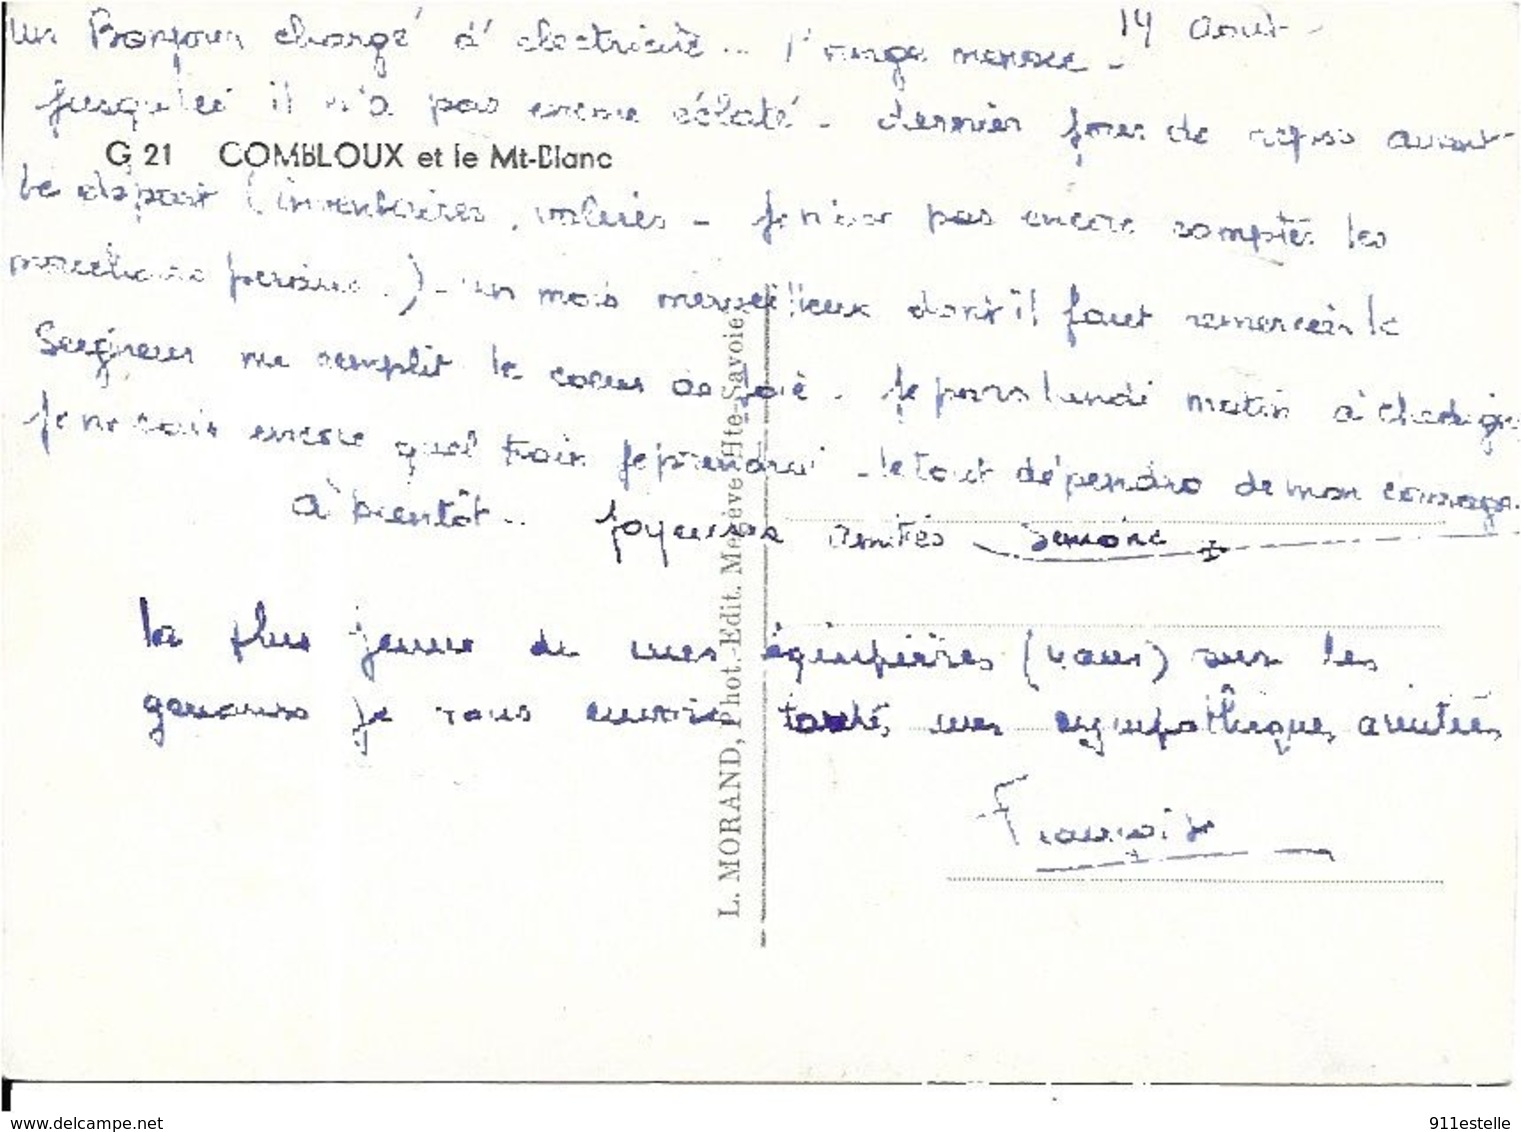 14 août -
Un Bonjour chargé d'électricité... l'orage menace -
Jusqu'ici il n'a pas encore éclaté - dernier jour de repos avant
G 21 COMBLOUX et le Mt-Blanc
le départ (inventaires, valises - Je n'ai pas encore compté les
morceaux perdus..) - un mois merveilleux dont il faut remercier le
Seigneur me remplit le coeur de joie. Je pars lundi matin à
Je ne sais encore quel train je prendrai - le tout dépendra de mon courage.
à bientôt... Joyeuses amitiés Simone
la plus jeune de mes équipières (vaux) sur les
genoux je vous envoie toutes mes sympathiques amitiés
Françoise
L. MORAND, Phot.-Edit. Megève (Hte-Savoie)
www.delcampe.net
911estelle